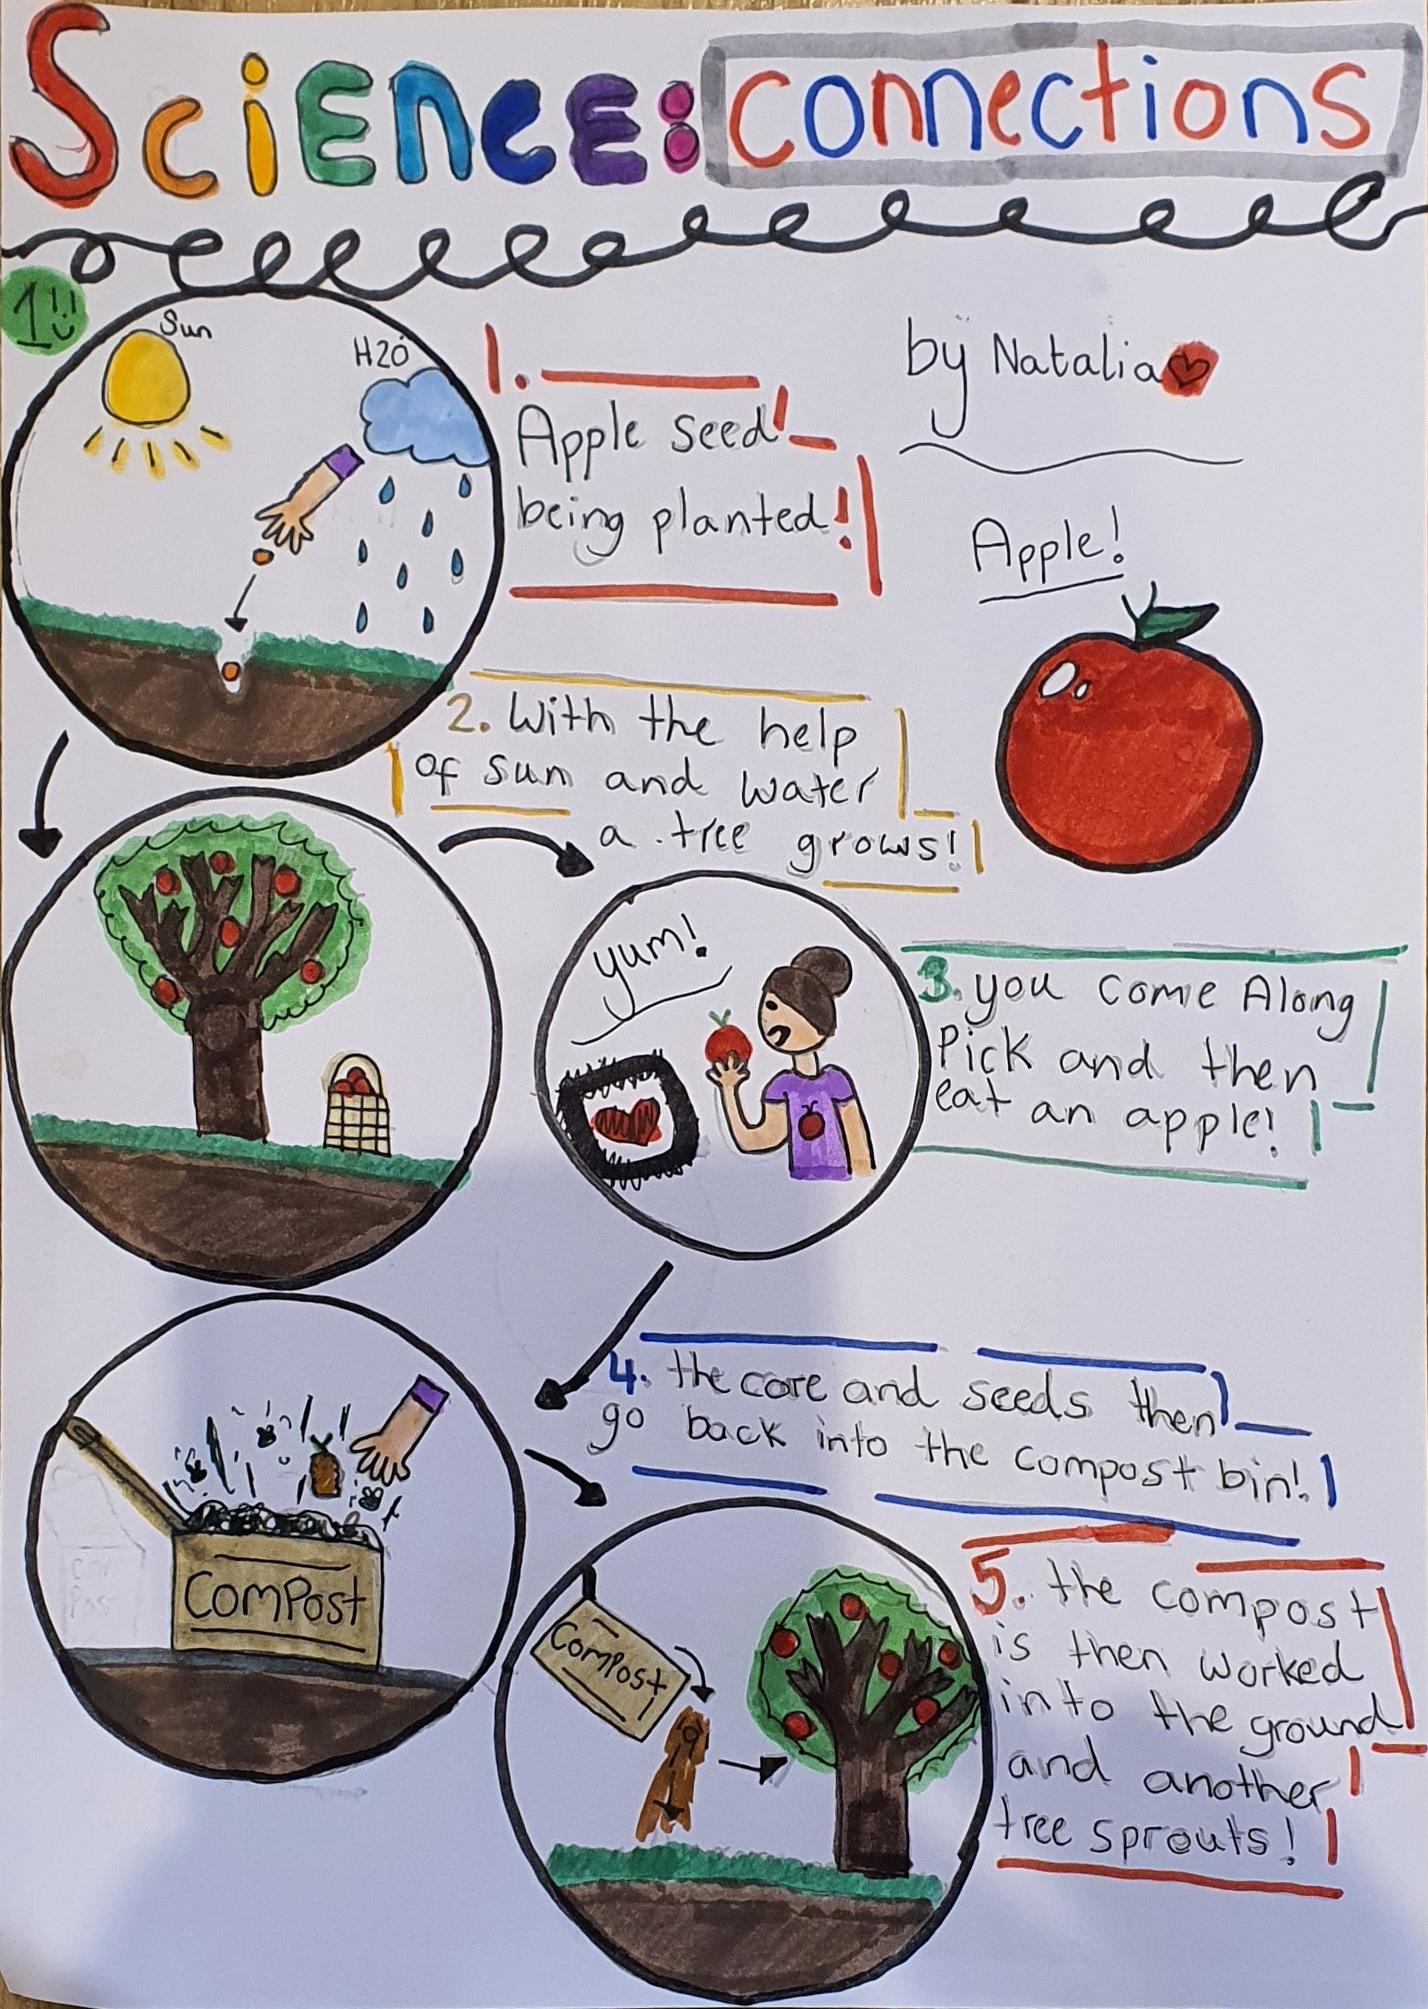 Science: connections
1
Sun
H2O
1.
Apple seed
being planted!
by Natalia
Apple!
2. With the help
of sun and water
a tree grows!
yum!
3. you come Along
Pick and then
eat an apple!
4. the core and seeds then
go back into the compost bin!
ComPost
5. the compost
is then worked
into the ground
and another
tree sprouts!
Compost